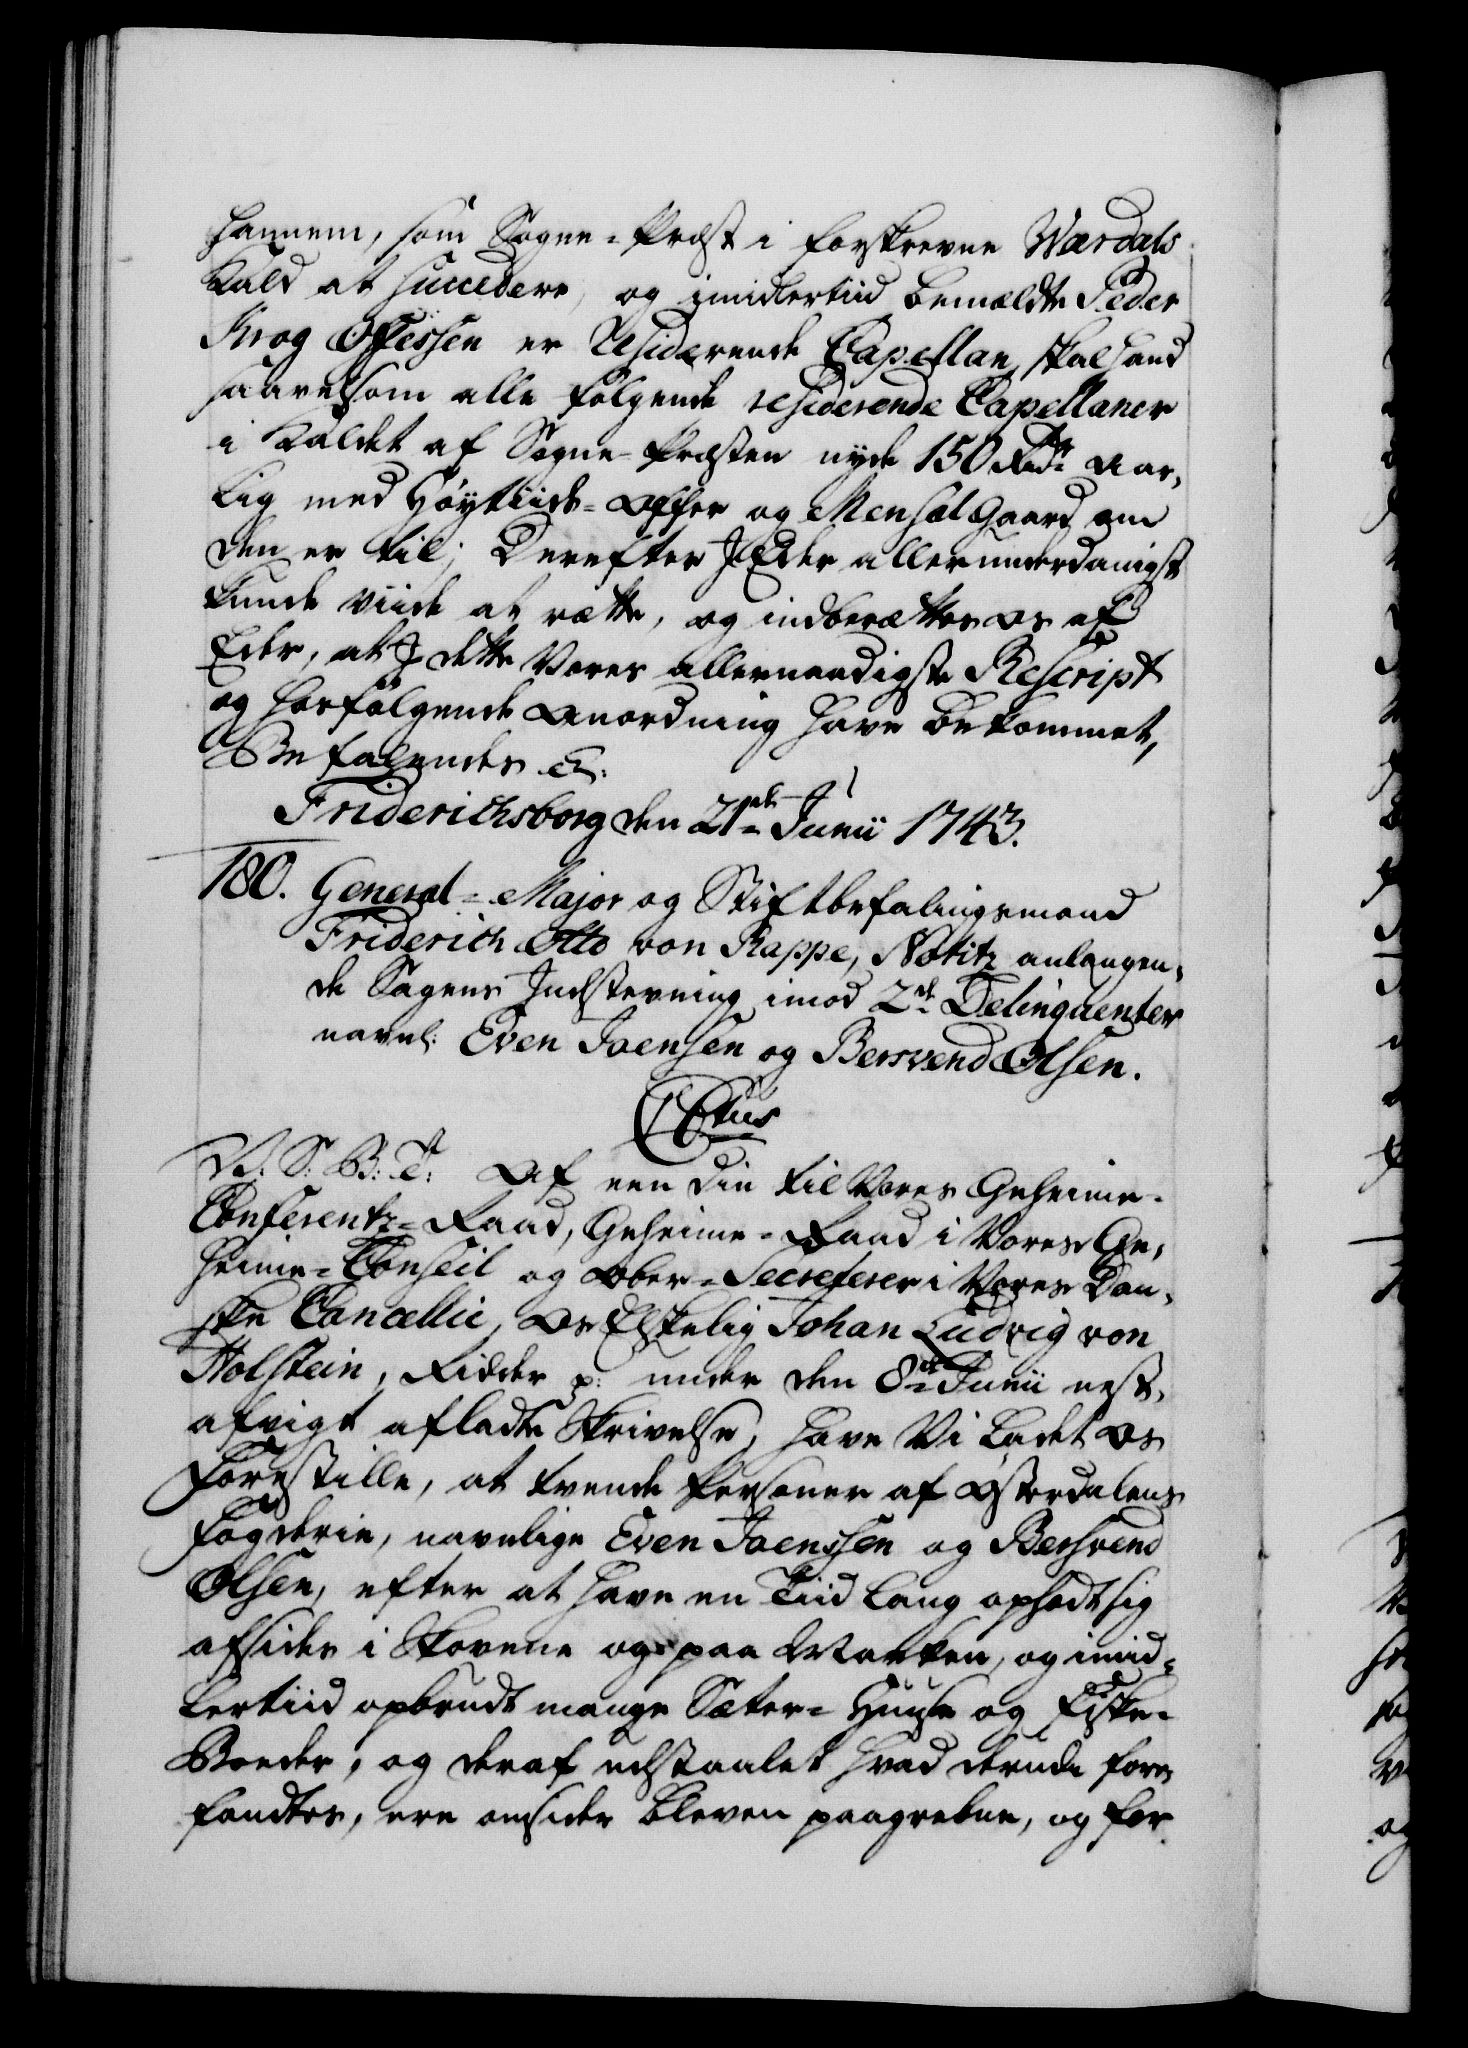 hannem, som Sogne-Præst i forskrevne Værdals
Kald at succedere, og imidlertiid bemældte Peder
Krog Offessen er Residerende Capellan, skal hand
saavelsom alle følgende residerende Capellaner
i Kaldet af Sogne-Præsten nyde 150 Rdr aar-
lig med Høytiids-Offer og Mensal Gaard om
den er til; Derefter I Eder allerunderdanigst
kunde viide at rætte, og indberætter Os af
Eder, at I dette Vores allernaadigste Rescript
og hosfølgende Anordning have bekommet,
Befalendes etc:
Friderichsborg den 21de Junii 1743.
180. General-Major og Stiftbefalingsmand
Friderich Otto von Rappe, Notitz anlangen-
de Sagens Indstevning imod 2de Delinquenter
navnl: Even Joensen og Bersvend Olsen.
CStus
V: S: B: T: Af een din til Vores Geheime-
Conferentz-Raad, Geheime-Raad i Vores Ge-
heime-Conseil og Ober-Secreterer i Vores Dan-
ske Cancellie, Os Elskelig Johan Ludvig von
Holstein, Ridder p: under den 8de Junii nest-
afvigt afladte Skrivelse, have Vi ladet Os
forestille, at tvende Personer af Østerdalens
Fogderie, navnlige Even Joenssen og Bersvend
Olsen, efter at have en Tiid lang opholdt sig
afsides i Skovene og paa Marken, og imid-
lertiid opbrudt mange Sæter-Huuse og Fiske-
Boeder, og deraf udstaalet hvad derudi fore-
fandtes, ere omsider bleven paagrebne, og for